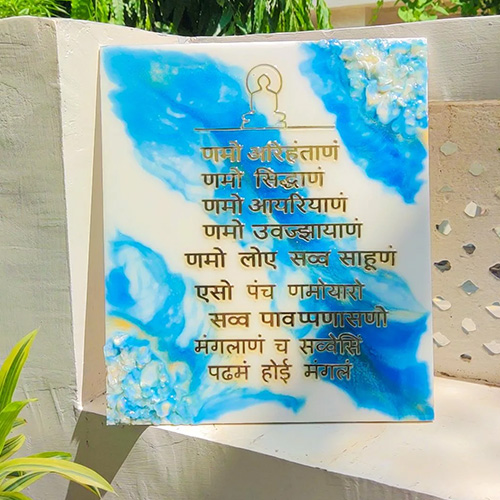 णमो अरिहंताणं
णमो सिद्धाणं
णमो आयरियाणं
णमो उवज्झायाणं
णमो लोए सव्व साहूणं
एसो पंच णमोयारो
सव्व पावप्पणासणो
मंगलाणं च सव्वेसिं
पढमं होई मंगलं